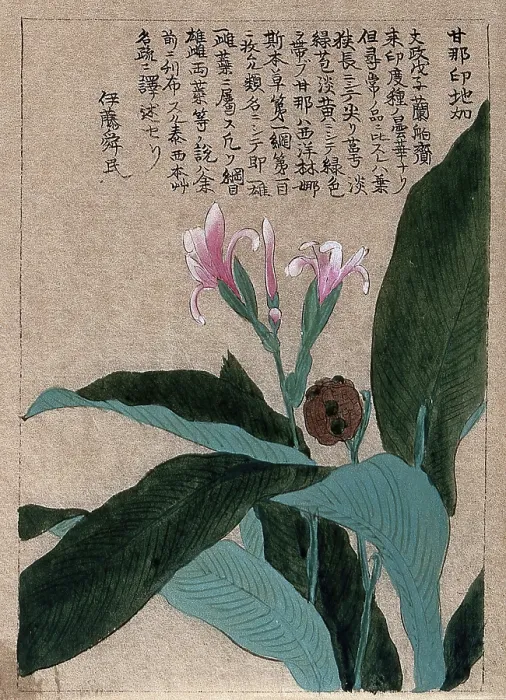 甘那印地加
文政戊子蘭舶齎
来印度種ノ曇華ナリ
但尋常ノ品ニ比スレハ葉
狭長ニシテ尖リ萼弓淡
緑苞淡黄ニシテ緑色
ヲ帯フ甘那ハ西洋林娜
斯本草第一綱第一目
ニ収ム類名ニシテ即一雄
一雌蕋ニ属ス凡ソ綱目
雄雌両蕋等ノ説ハ余
前ニ刊布スル泰西本艸
名疏ニ譯述セリ
伊藤舜民